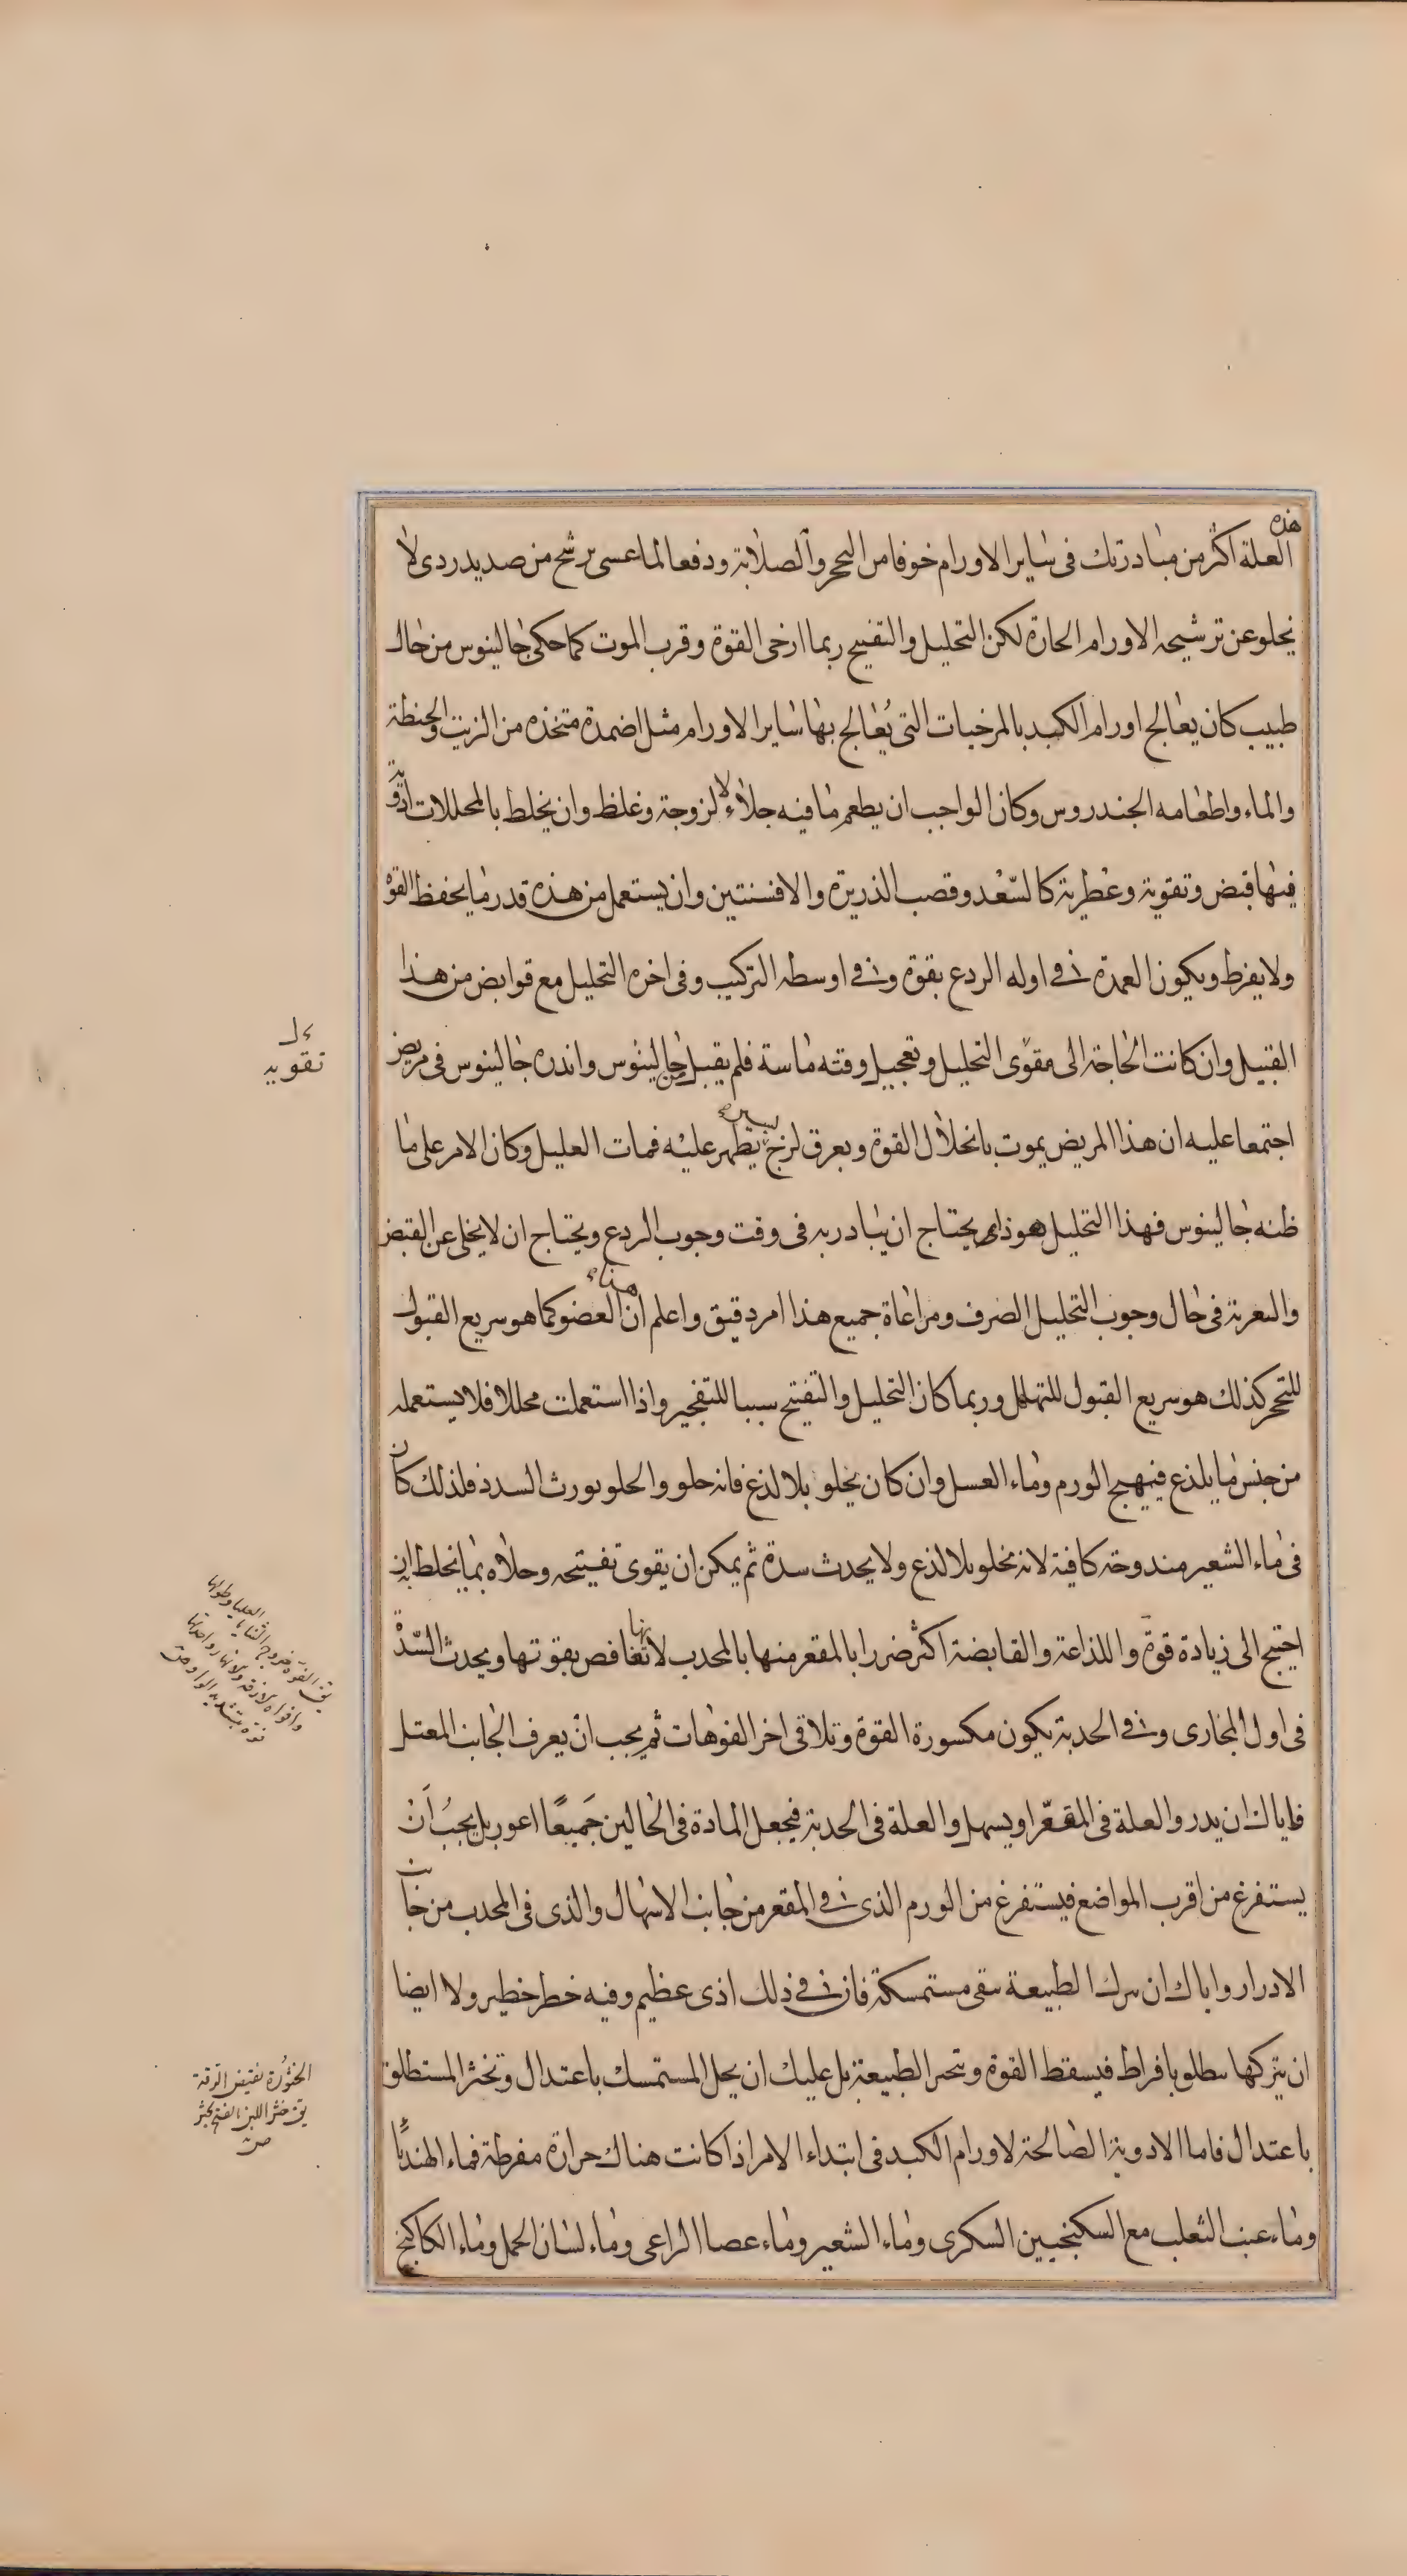 هذه
العلة اكثر من مبادرتك فى ساير الاورام خوفا من التحجر والصلابة ودفعا لما عسى يرشح من صديد ردى لا
يخلو عن ترشيحه الاورام الحارة لكن التحليل والتفتيح ربما ارخى القوة وقرب الموت كما حكى جالينوس من حال
طبيب كان يعالج اورام الكبد بالمرخيات التى يُعالج بها ساير الاورام مثل اضمدة متخذه من الزيت والحنطة
والماء واطعامه الجندروس وكان الواجب ان يطعم ما فيه جلاء لا لزوجة وغلظ وان يخلط بالمحللات ادوية
فيها قبض وتقوية وعطرية كالسّعُد وقصب الذريرة والافسنتين وان يستعمل من هذه قدر ما يحفظ القوة
ولا يفرط ويكون العمدة فى اوله الردع بقوة وفى اوسطه التركيب وفى اخره التحليل مع قوابض من هذا
القبيل وان كانت الحاجة الى مقوى التحليل وتعجيل وقته ماسة فلم يقبل من جالينوس وانذره جالينوس فى مريض
اجتمعا عليه ان هذا المريض يموت بانحلال القوة وبعرق لزج يسير يظهر عليه فمات العليل وكان الامر على ما
ظنه جالينوس فهذا التحليل هو ذا يحتاج ان يبادر به فى وقت وجوب الردع ويحتاج ان لا يخلى عن القبض
والتغرية فى حال وجوب التحليل الصرف ومراعاة جميع هذا امر دقيق واعلم ان هذا العضو كما هو سريع القبول
للتحجر كذلك هو سريع القبول للتهلل وربما كان التحليل والتفتيح سببا للتفجير واذا استعملت محللا فلا يستعمله
من جنس ما يلذع فيهيج الورم وماء العسل وان كان يجلو بلا لذع فانه حلو والحلو يورث السدد فلذلك كان
فى ماء الشعير مندوحة كافية لانه يجلو بلا لذع ولا يحدث سدة ثم يمكن ان يقوى تفتيحه وجلاه بما يخلط به ان
احتيج الى زيادة قوة واللذاعة والقابضة اكثر ضررا بالمقعر منها بالمحدب لانها تغافص بقوتها ويحدث السّدّة
فى اول المجارى وفى الحدبة يكون مكسورة القوة وتلاقى اخر الفوهات ثم يجب ان يعرف الجانب المعتل
فاياك ان يدر والعلة فى المقعّر او يسهل والعلة فى الحدبة فيجعل المادة فى الحالين جَميعًا اغور بل يجبُ اَن
يستفرغ من اقرب المواضع فيستفرغ من الورم الذى فى المقعر من جانب الاسهال والذى فى المحدب من جانب
الادرار واياك ان يترك الطبيعة تبقى مستمسكة فان فى ذلك اذى عظيم وفيه خطر خطير ولا ايضا
ان يتركها تنطلق بافراط فيسقط القوة وتخر الطبيعة بل عليك ان يحل المستمسك باعتدال وتخثر المستطلق
باعتدال فاما الادوية الصالحة لاورام الكبد فى ابتداء الامر اذا كانت هناك حرارة مفرطة فماء الهندبا
وماء عنب الثعلب مع السكنجبين السكرى وماء الشعير وماء عصا الراعى وماء لسان الحمل وماء الكاكنج
تقويه
الخثورة نقيض الرقة
يق خثر اللبن بالفتح يخثر
ص